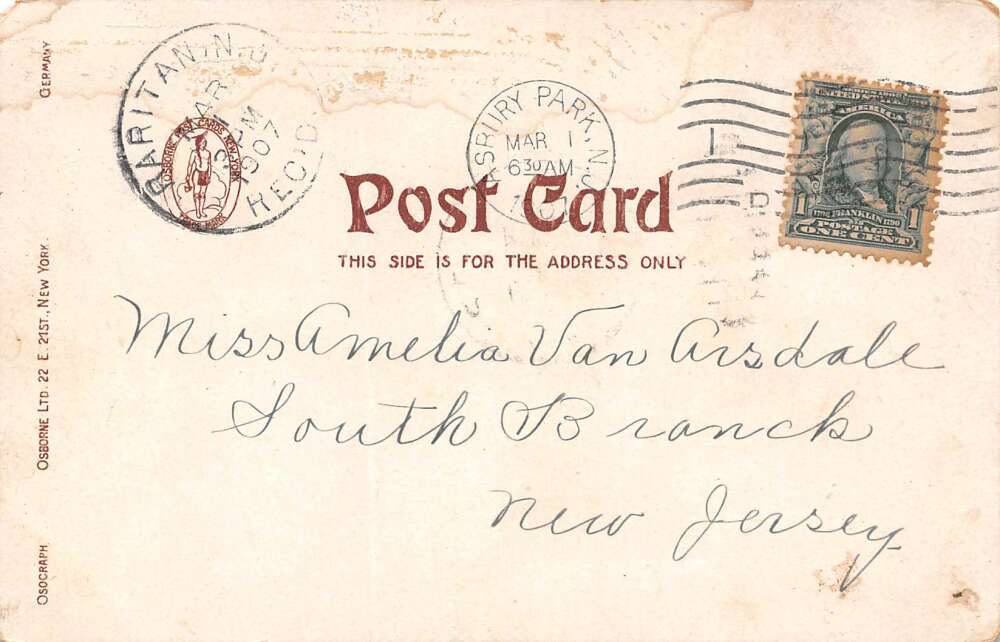 RARITAN, N.J.
MAR
1
2 PM
1907
REC'D.
OSBORNE POST CARDS NEW-YORK
ASBURY PARK, N.J.
MAR 1
6 30 AM
1907
POSTAGE
ONE CENT
1706 FRANKLIN 1790
AMERICA
1 1
Post Card
THIS SIDE IS FOR THE ADDRESS ONLY
Miss Amelia Van Arsdale
South Branch
New Jersey
OSOGRAPH OSBORNE LTD. 22 E. 21ST., NEW YORK. GERMANY